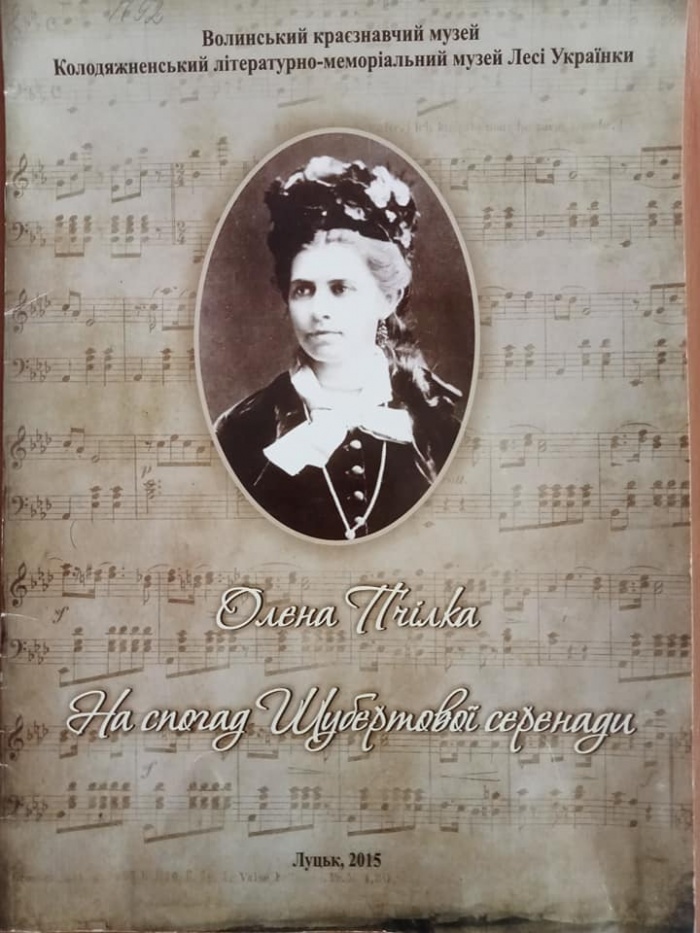 Волинський краєзнавчий музей
Колодяжненський літературно-меморіальний музей Лесі Українки
Олена Пчілка
На спогад Шубертової серенади
Луцьк, 2015